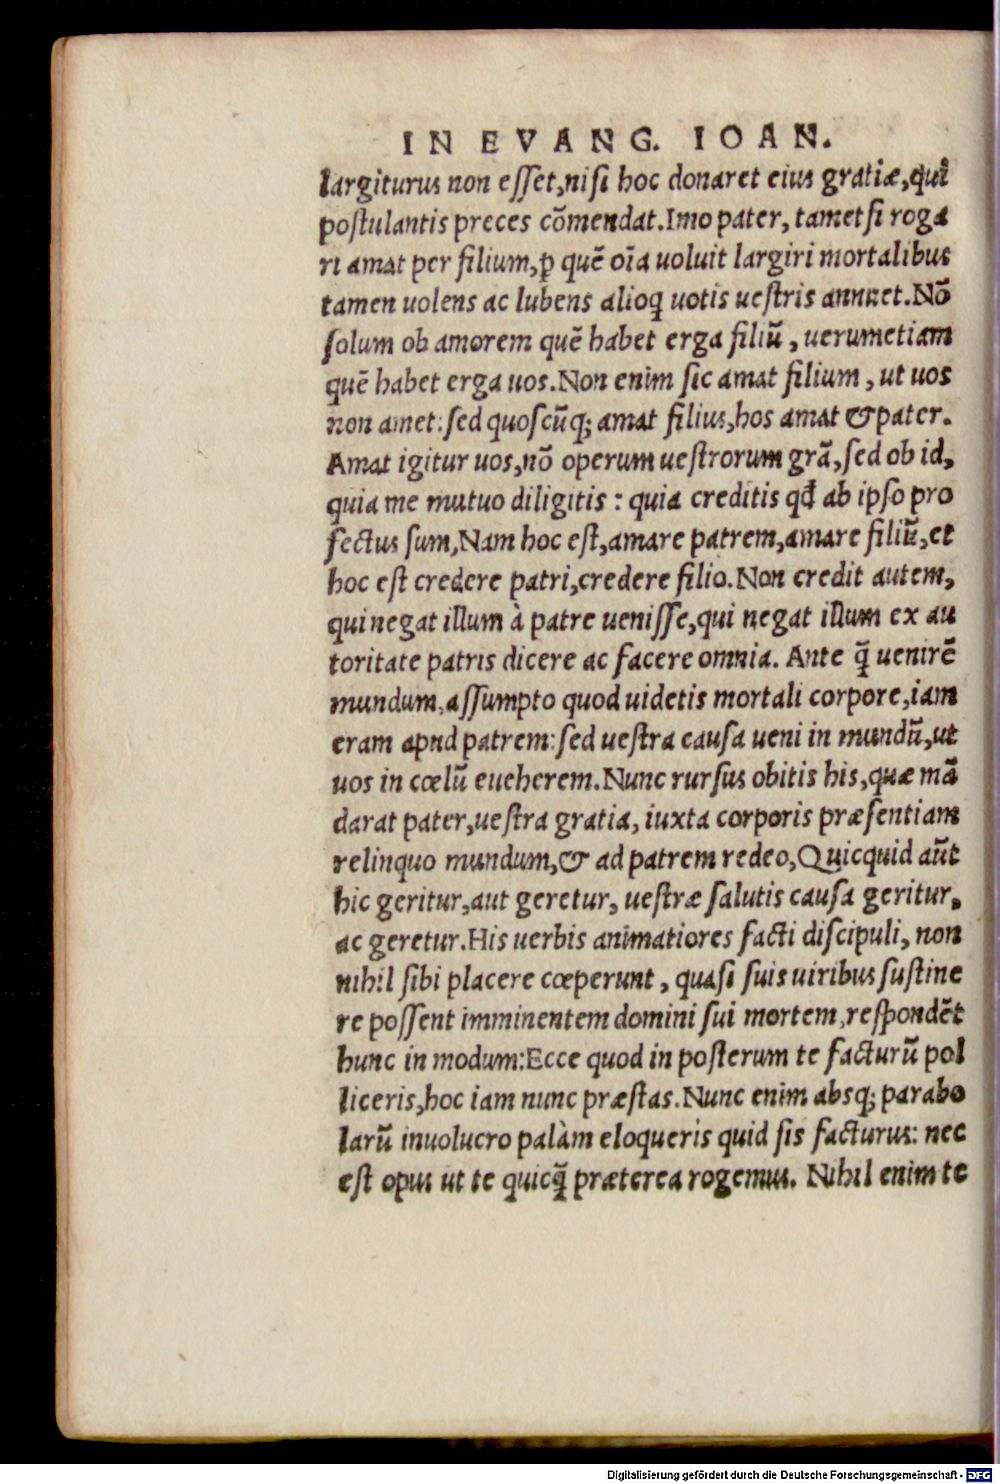 IN EVANG. IOAN.
largiturus non esset,nisi hoc donaret eius gratiæ,qui
postulantis preces cõmendat.Imo pater, tametsi roga
ri amat per filium,ꝑ quẽ oĩa uoluit largiri mortalibus
tamen uolens ac lubens alioq̃ uotis uestris annuet.Nõ
solum ob amorem quẽ habet erga filiũ, uerumetiam
quẽ habet erga uos.Non enim sic amat filium, ut uos
non amet:sed quoscũq; amat filius,hos amat &pater.
Amat igitur uos,nõ operum uestrorum grã,sed ob id,
quia me mutuo diligitis: quia creditis qđ ab ipso pro
fectus sum,Nam hoc est,amare patrem,amare filiũ,et
hoc est credere patri,credere filio.Non credit autem,
qui negat illum à patre uenisse,qui negat illum ex au
toritate patris dicere ac facere omnia. Ante q̃ uenirẽ
mundum,assumpto quod uidetis mortali corpore,iam
eram apud patrem:sed uestra causa ueni in mundũ,ut
uos in cœlũ eueherem.Nunc rursus obitis his,quæ mã
darat pater,uestra gratia, iuxta corporis præsentiam
relinquo mundum,& ad patrem redeo,Quicquid aũt
hic geritur,aut geretur, uestræ salutis causa geritur,
ac geretur.His uerbis animatiores facti discipuli, non
nihil sibi placere cœperunt, quasi suis uiribus sustine
re possent imminentem domini sui mortem,respondẽt
hunc in modum:Ecce quod in posterum te facturũ pol
liceris,hoc iam nunc præstas.Nunc enim absq; parabo
larũ inuolucro palàm eloqueris quid sis facturus: nec
est opus ut te quicq̃ præterea rogemus. Nihil enim te
Digitalisierung gefördert durch die Deutsche Forschungsgemeinschaft - DFG